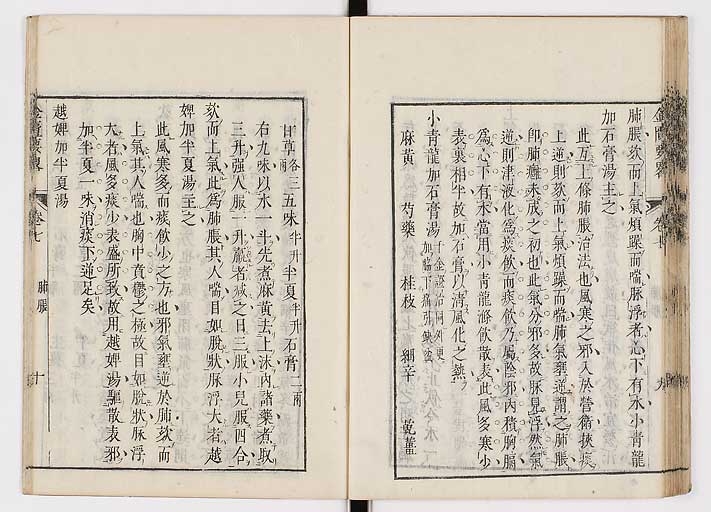 肺脹欬而上氣煩躁而喘脉浮者心下有水小青龍
加石膏湯主之
此互上條肺脹治法也風寒之邪入於營衛挾痰
上逆則欬而上氣煩躁而喘肺氣壅逆謂之肺脹
即肺癰未成之初也此氣分邪多故脉見浮然氣
逆則津液化為痰飲而痰飲乃屬陰邪內積胸膈
為心下有水當用小青龍滌飲散表此風多寒少
表裏相半故加石膏以清風化之熱
小青龍加石膏湯
麻黃 芍藥 桂枝 細辛 乾薑
甘草各三兩五味半升半夏半升石膏二兩
右九味以水一斗先煮麻黃去上沫內諸藥煮取
三升強人服一升羸者減之日三服小兒服四合
欬而上氣此為肺脹其人喘目如脫狀脉浮大者越
婢加半夏湯主之
此風寒多而痰飲少之方也邪氣壅逆於肺欬而
上氣其人喘也胸中賁鬱之極故目如脫狀脉浮
大者風多痰少表盛所致故用越婢湯驅散表邪
加半夏一味消痰下逆足矣
越婢加半夏湯
金匱要畧
卷七
肺脹
十
金匱要畧
卷七
九